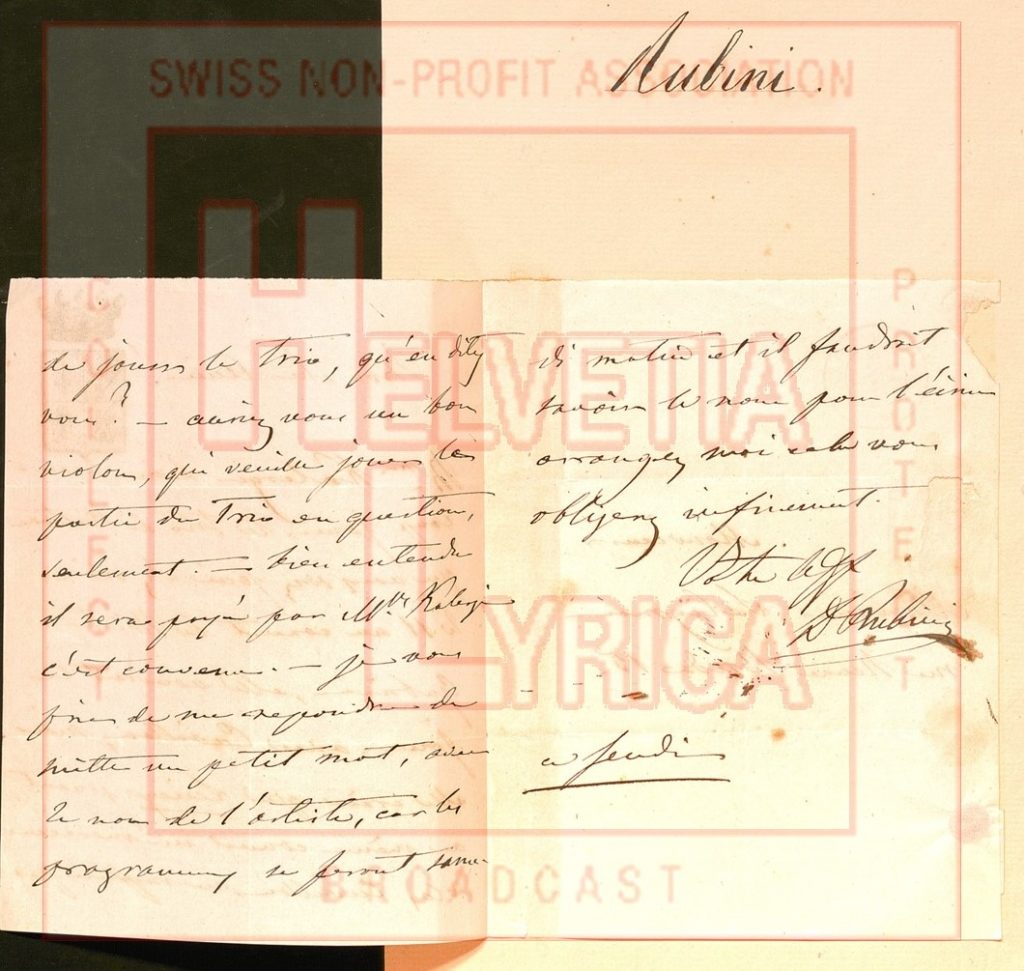 SWISS NON-PROFIT ASSOCIATION
Rubini.
HELVETIA
LYRICA
BROADCAST
COPROTECT
de jouer le Trio, qu'en dites
vous? — auriez vous un bon
violon, qui veuille jouer la
partie du Trio en question,
seulement. — bien entendu
il sera payé par M.
c'est convenu. — je vous
prie de me repondre de
suitte un petit mot, avec
le nom de l'artiste, car les
programmes se feront same-
di matin et il faudrait
savoir le nom pour l'écrire
arrangez moi cela vous
obligerez infiniment.
Votre
Rubini
a Jeudi